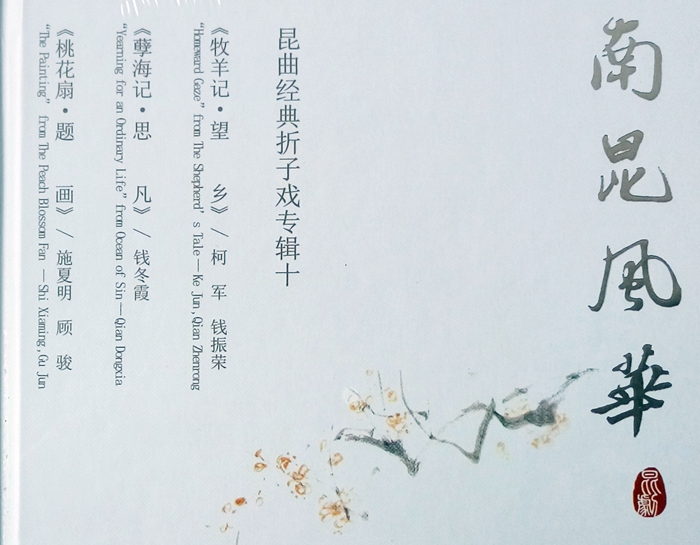 南昆風華
昆劇
昆曲经典折子戏专辑十
《牧羊记·望 乡》/ 柯 军 钱振荣
"Homeward Gaze" from The Shepherd's Tale—Ke Jun,Qian Zhenrong
《孽海记·思 凡》/ 钱冬霞
"Yearning for an Ordinary Life" from Ocean of Sin—Qian Dongxia
《桃花扇·题 画》/ 施夏明 顾 骏
"The Painting" from The Peach Blossom Fan —Shi Xiaming,Gu Jun